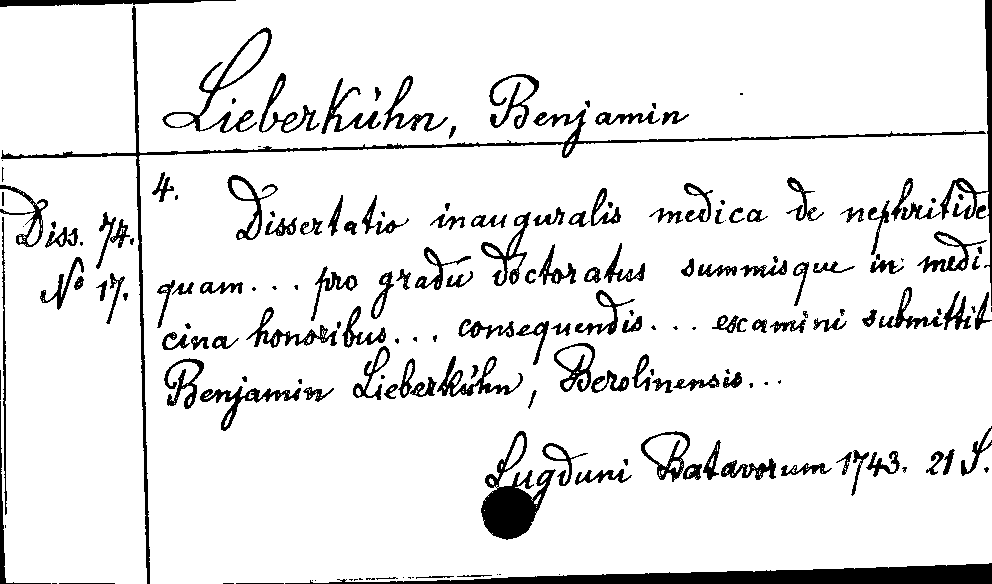 Lieberkühn, Benjamin
Diss. 74.
No 17.
4.
Dissertatio inauguralis medica de nephritide
quam... pro gradu doctoratus summisque in medi-
cina honoribus... consequendis... examini submittit
Benjamin Lieberkühn, Berolinensis...
Lugduni Batavorum 1743. 21 S.